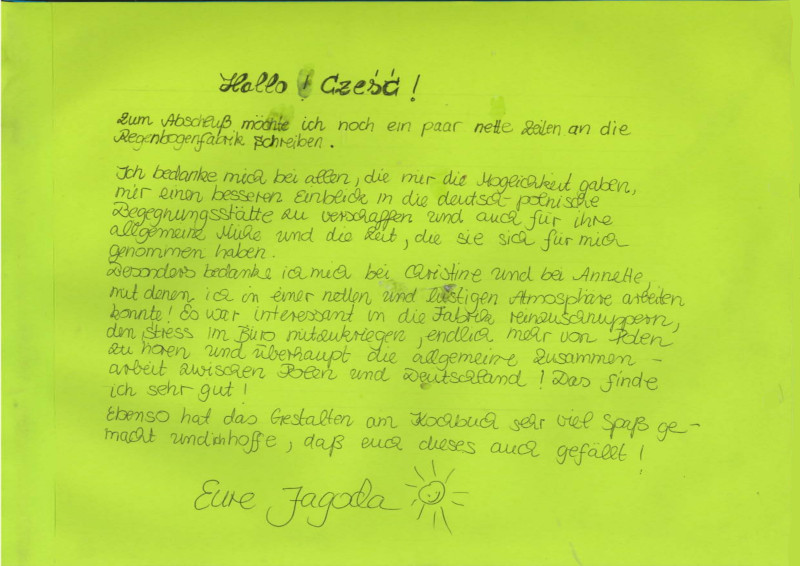 Hallo! Cześć!
Zum Abschluß möchte ich noch ein paar nette Zeilen an die
Regenbogenfabrik schreiben.
Ich bedanke mich bei allen, die mir die Möglichkeit gaben,
mir einen besseren Einblick in die deutsch-polnische
Begegnungsstätte zu verschaffen und auch für ihre
allgemeine Mühe und die Zeit, die sie sich für mich
genommen haben.
Besonders bedanke ich mich bei Christine und bei Annette,
mit denen ich in einer netten und lustigen Atmosphäre arbeiten
konnte! Es war interessant in die Fabrik reinzuschnuppern,
den Stress im Büro mitzukriegen, endlich mehr von Polen
zu hören und überhaupt die allgemeine Zusammen-
arbeit zwischen Polen und Deutschland! Das finde
ich sehr gut!
Ebenso hat das Gestalten am Kochbuch sehr viel Spaß ge-
macht und ich hoffe, daß euch dieses auch gefällt!
Eure Jagoda